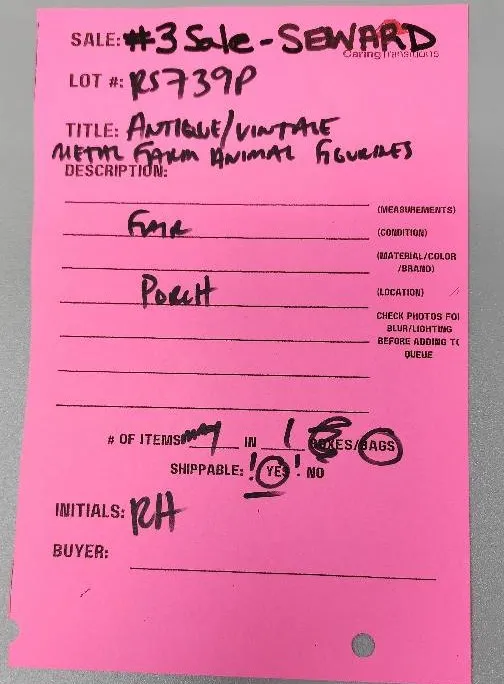 SALE: #3 Sale - SEWARD
CaringTransitions
LOT #: RS739P
TITLE: ANTIQUE/VINTAGE
METAL FARM ANIMAL FIGURINES
DESCRIPTION:
(MEASUREMENTS)
FAIR (CONDITION)
(MATERIAL/COLOR
/BRAND)
PORCH (LOCATION)
CHECK PHOTOS FO
BLUR/LIGHTING
BEFORE ADDING TO
QUEUE
# OF ITEMS MANY IN 1 BOXES/BAGS
SHIPPABLE: ! YES ! NO
INITIALS: RH
BUYER: